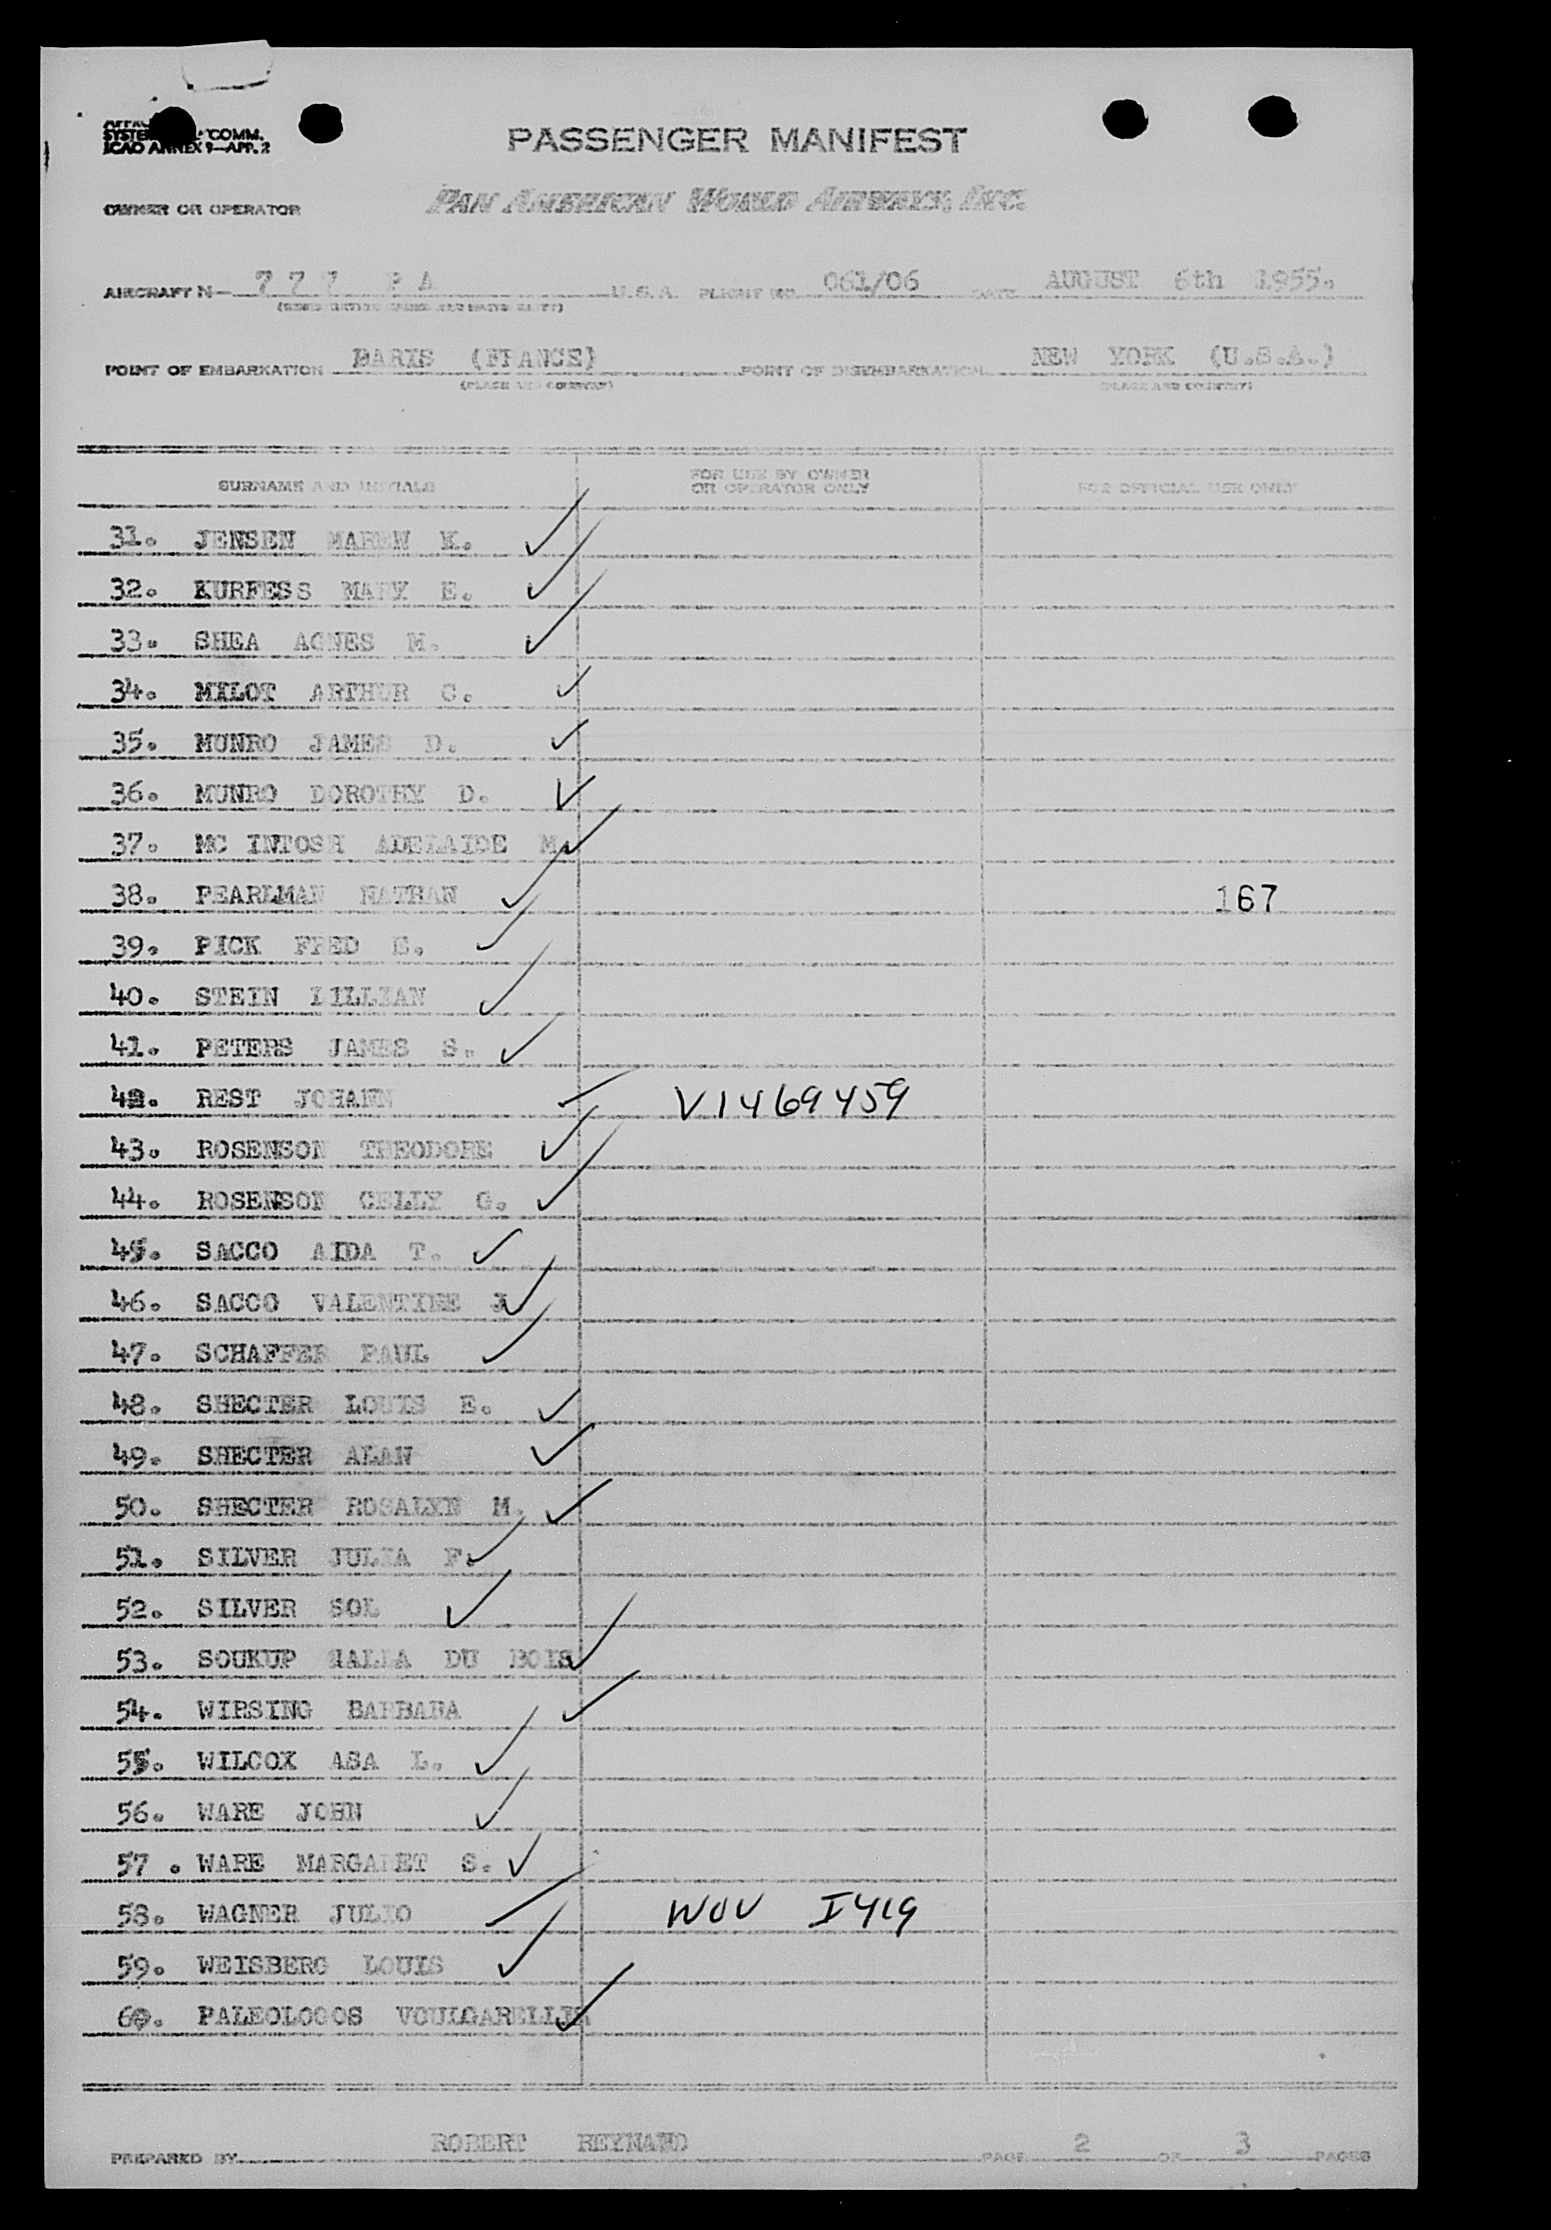 SYSTE COMM.
ICAO ANNEX 9—APP. 2
PASSENGER MANIFEST
OWNER OR OPERATOR PAN AMERICAN WORLD AIRWAYS, INC.
AIRCRAFT N- 7 7 7 P A U.S.A. FLIGHT NO. 061/06 DATE AUGUST 6th 1955.
POINT OF EMBARKATION PARIS (FRANCE) POINT OF DISEMBARKATION NEW YORK (U.S.A.)
(PLACE AND COUNTRY) (PLACE AND COUNTRY)
SURNAME AND INITIALS FOR USE BY OWNER OR OPERATOR ONLY FOR OFFICIAL USE ONLY
31. JENSEN MAREN K.
32. KURFESS MARY E.
33. SHEA AGNES M.
34. MILOT ARTHUR C.
35. MUNRO JAMES D.
36. MUNRO DOROTHY D.
37. MC INTOSH ADELAIDE M.
38. PEARLMAN NATHAN 167
39. PICK FRED E.
40. STEIN LILLIAN
41. PETERS JAMES S.
42. REST JOHANN V1469459
43. ROSENSON THEODORE
44. ROSENSON CELLY G.
45. SACCO AIDA T.
46. SACCO VALENTINE J
47. SCHAFFER PAUL
48. SHECTER LOUIS E.
49. SHECTER ALAN
50. SHECTER ROSALYN M.
51. SILVER JULIA F.
52. SILVER SOL
53. SOUKUP HALLA DU BOIS
54. WIRSING BARBARA
55. WILCOX ASA L.
56. WARE JOHN
57. WARE MARGARET S.
58. WAGNER JULIO WOV I419
59. WEISBERG LOUIS
60. PALEOLOGOS VOULGARELLI
PREPARED BY ROBERT REYNAUD PAGE 2 OF 3 PAGES